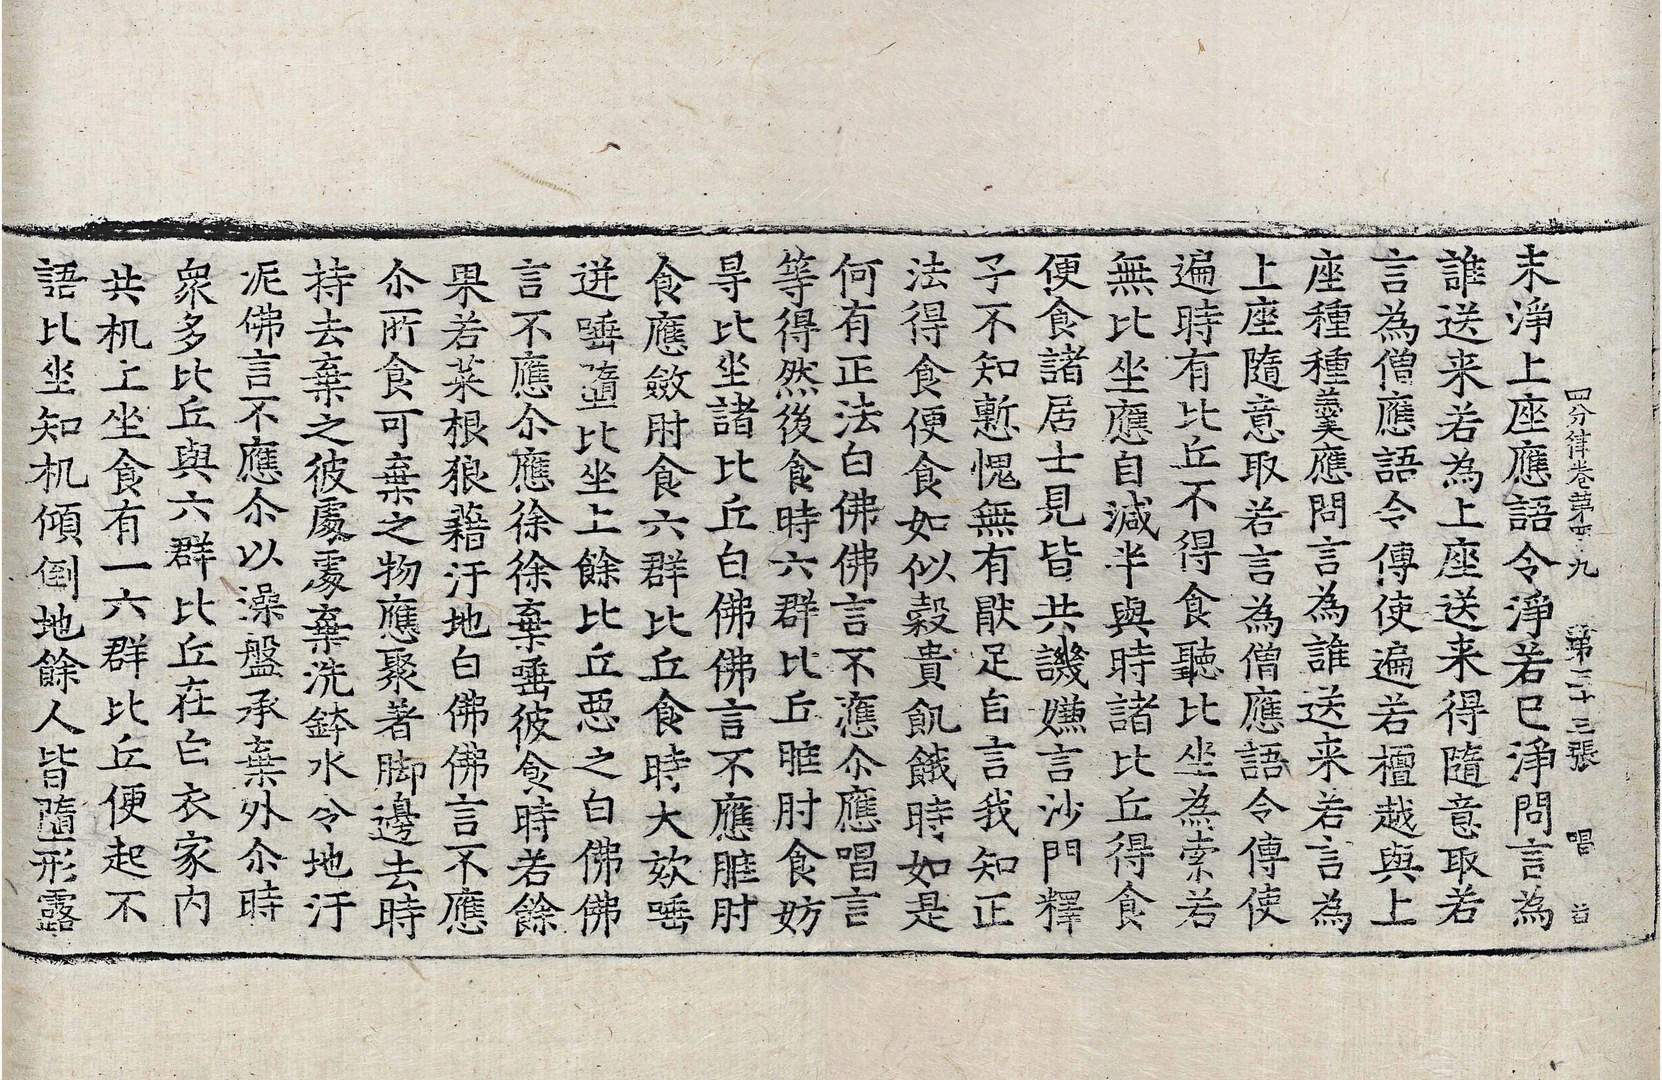 四分律卷第四九 第二十三張 唱
未淨上座應語令淨若已淨問言為
誰送来若為上座送来得隨意取若
言為僧應語令傳使遍若檀越與上
座種種羹應問言為誰送来若言為
上座隨意取若言為僧應語令傳使
遍時有比丘不得食聽比坐為索若
無比坐應自減半與時諸比丘得食
便食諸居士見皆共譏嫌言沙門釋
子不知慙愧無有猒足自言我知正
法得食便食如似穀貴飢餓時如是
何有正法白佛佛言不應尒應唱言
等得然後食時六群比丘䧹肘食妨
㝵比坐諸比丘白佛佛言不應䧹肘
食應斂肘食六群比丘食時大欬唾
迸唾墮比坐上餘比丘惡之白佛佛
言不應尒應徐徐棄唾彼食時若餘
果若菜根狼藉汙地白佛佛言不應
尒所食可棄之物應聚著脚邊去時
持去棄之彼處處棄洗鉢水令地汙
泥佛言不應尒以澡盤承棄外尒時
衆多比丘與六群比丘在白衣家内
共机上坐食有一六群比丘便起不
語比坐知机傾倒地餘人皆墮形露